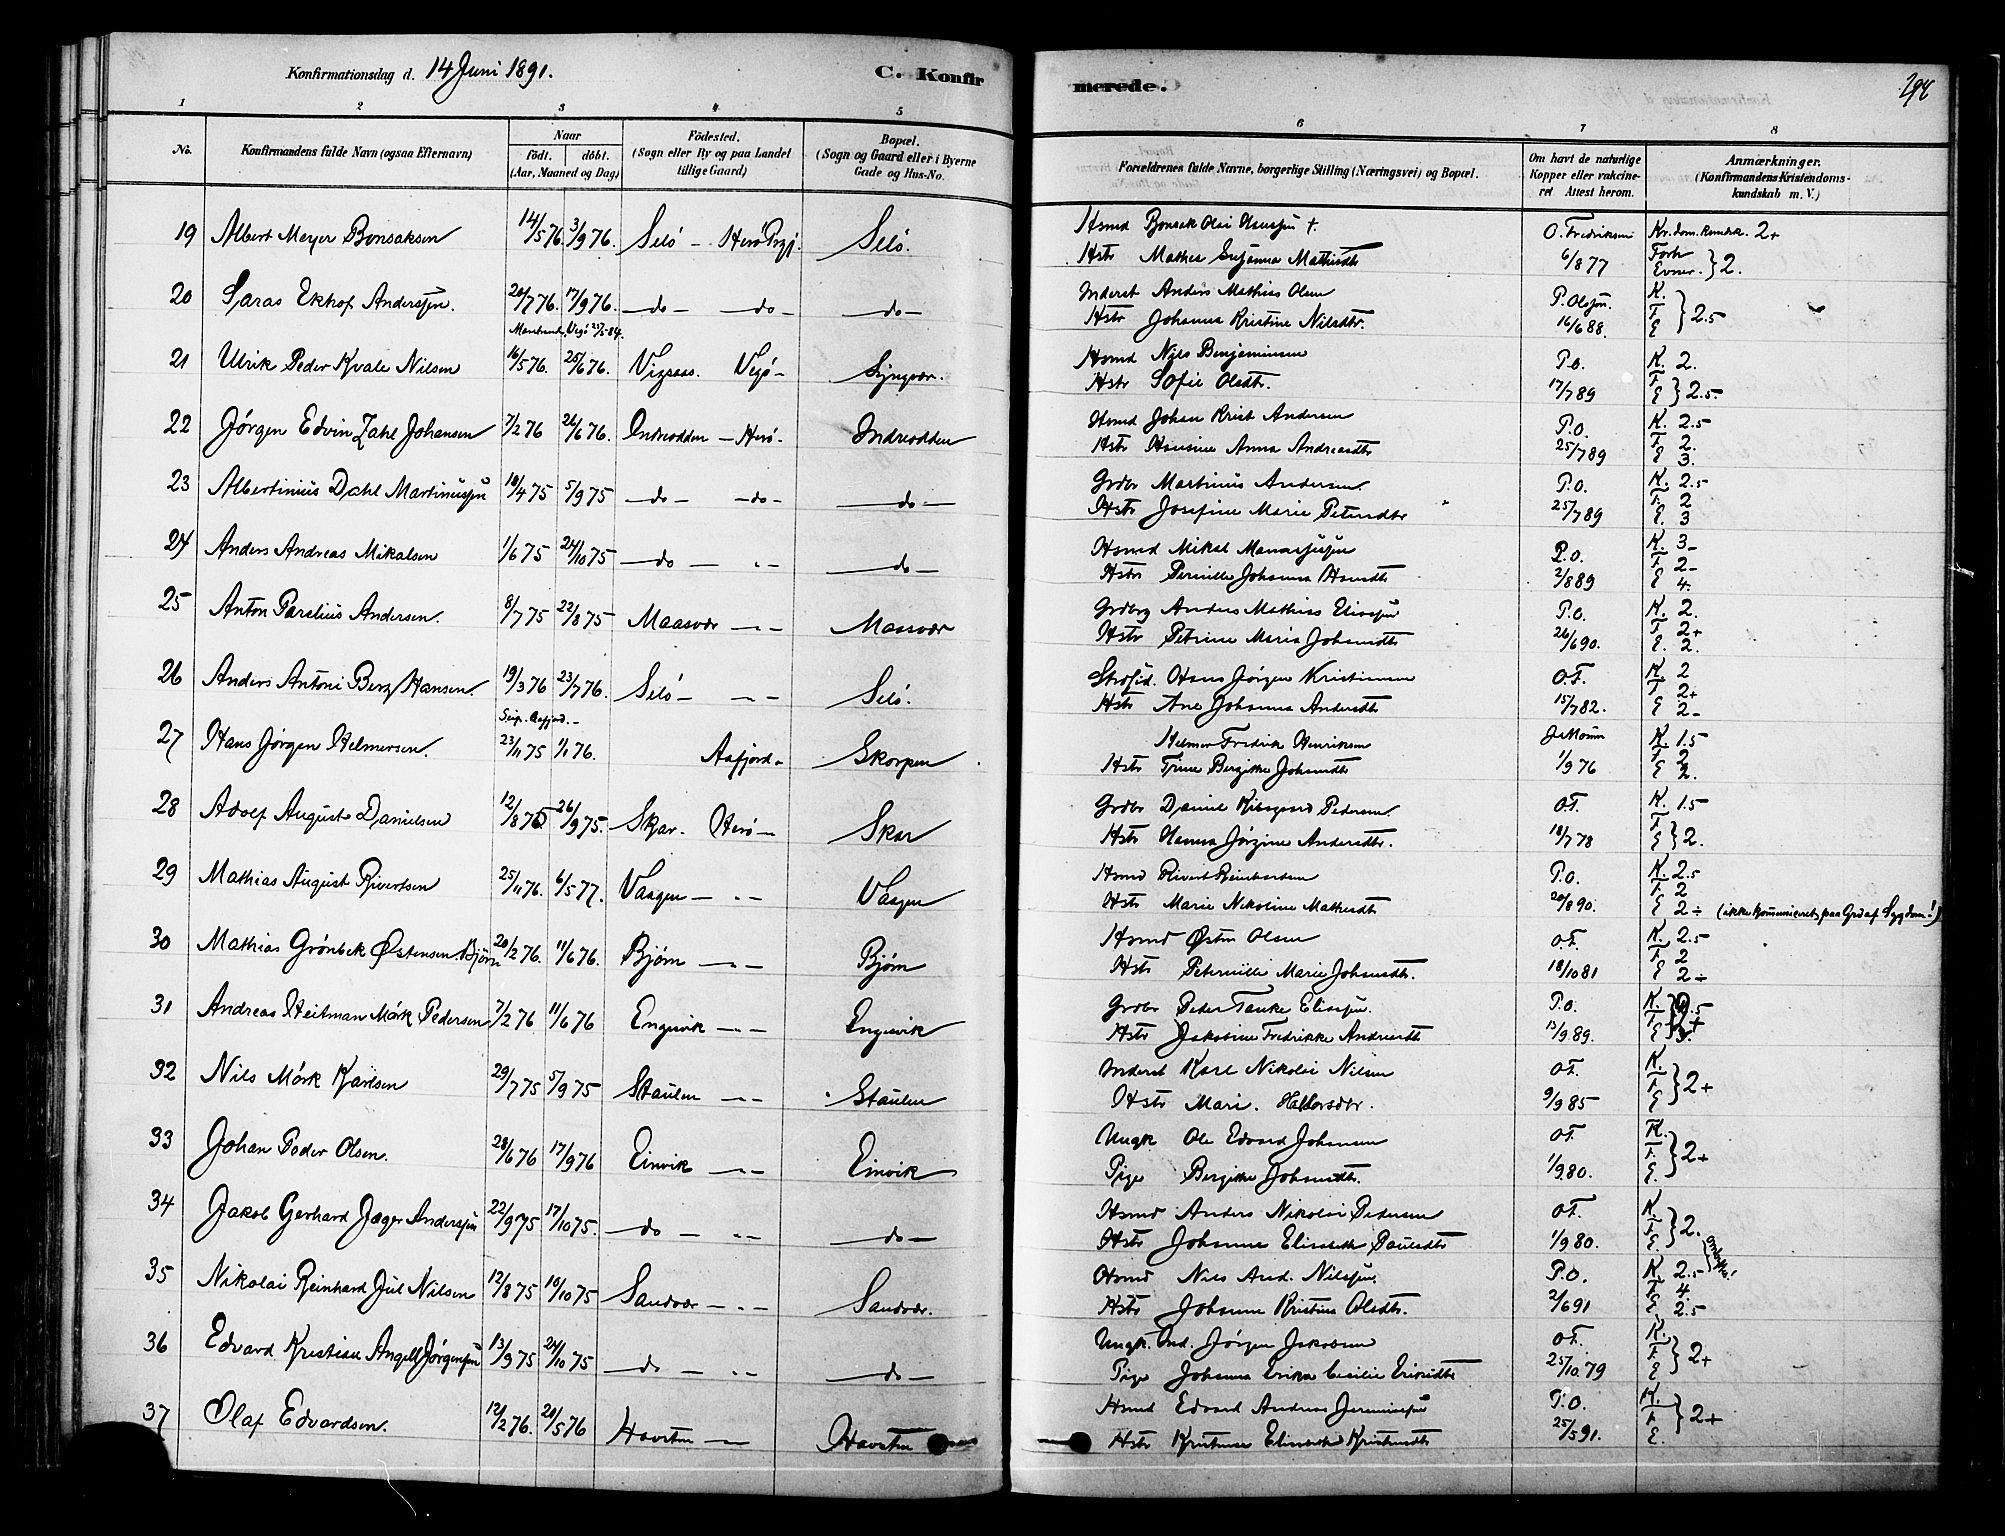 Konfirmationsdag d. 14 Juni 1891.
C. Konfir
merede.
298
1 2 3 4 5 6 7 8
No.
Konfirmandens fulde Navn (ogsaa Efternavn)
Naar
födt. döbt.
(Aar, Maaned og Dag)
Födested.
(Sogn eller By og paa Landet
tillige Gaard)
Bopæl.
(Sogn og Gaard eller i Byerne
Gade og Hus-No.
Forældrenes fulde Navne, borgerlige Stilling (Næringsvei) og Bopæl.
Om havt de naturlige
Kopper eller vakcine-
ret Attest herom.
Anmærkninger.
(Konfirmandens Kristendoms-
kundskab m. V.)
19 Albert Meyer Bonsaksen 14/5 76. 3/9 76. Selö - Herö Prgj. Selö. Hsmd Bonsak Olai Hansen †. O. Fredriksen Kr.dom.kundsk. 2+
Hstr Mathea Susanna Mathisdtr 6/8 77 Forh Evner. } 2.
20 Saras Ekhof Anderssen. 20/7 76. 17/9 76. -do- -do- -do- Inderst Anders Mathias Olsen P. Olssen. K.
Hstr Johanna Kristine Nilsdtr. 16/6 88. F E } 2.5
21 Ulrik Peder Kvale Nilsen 16/5 76. 25/6 76. Vigsaas. Vegö- Lyngvær. Hsmd Nils Benjaminsen P.o. K. 2.
Hstr Sofie Olsdtr. 17/7 89 F E } 2.5.
22 Jörgen Edvin Zahl Johansen 7/2 76 26/6 76. Indreodden - Herö. Indreodden Hsmd Johan Krist Andersen P.O. K. 2.5
Hstr Hansine Anna Andreasdtr 25/7 89 F. 2. E 3.
23 Albertinius Dahl Martinussen 18/4 75 5/9 75 -do- -do- -do- Grdbr Martinus Andersen. P.O. K. 2.5
Hstr Josefine Marie Petersdtr 25/7 89 F. 2 E. 3
24 Anders Andreas Mikalsen 1/6 75 24/10 75 -do- „- -do- Hsmd Mikal Manassesen P.O. K. 3-
Hstr Pernille Johanna Hansdtr 2/8 89 F 2- E 4.
25 Anton Parelius Andersen. 8/7 75 22/8 75 Maasvær -„- Maasvær Grdbrg Anders Mathias Eliassen P.O. K. 2.
Hstr Petrine Maria Johansdtr 26/6 90. F 2+ E. 2.
26 Anders Antoni Berg Hansen. 19/3 76 23/7 76. Selö - -„- Selö. Hans Jörgen Kristiansen O.F. K. 2
Hstr Ane Johanna Andersdtr 15/7 82. F. 2+ E 2-
27 Hans Jörgen Helmersen. 23/11 75 1/1 76. Aafjord. Skorpen Helmer Fredrik Henriksen K. 1.5
Hstr Trine Bergitte Johansdtr 1/9 76 F 2 E 2.
28 Adolf August Danielsen 12/8 75 26/9 75. Skjar. Herö- Skar Grdbr Daniel Kibsgaard Pedersen. O.F. K. 1.5
Hstr Hanna Jörgine Andersdtr. 18/7 78 F. E } 2.
29 Mathias August Rivertsen 25/11 76. 6/5 77. Vaagen - „- Vaagen Hsmd Rivert Reinhardsen P.O. K. 2.5
Hstr Marie Nikoline Mathisdtr 20/8 90. F. 2 E 2÷ (ikke kommuniceret paa Grd af Sygdom!)
30 Mathias Grönbek Østensen Bjørn 20/2 76. 11/6 76. Bjørn -„- Bjørn Hsmd Østen Olsen O.F. K. 2.5
Hstr Peternille Marie Johansdtr. 18/10 81 F 2 E 2÷
31 Andreas Heitman Mörk Pedersen 7/2 76 11/6 76 Engesvik -„- Engesvik Grdbr Peder Tanke Eliassen. P.O. K.
Hstr Jakobine Fredrikke Andreasdtr 13/9 89. F E
32 Nils Mörk Karlsen 29/7 75 5/9 75 Staulen -„- Staulen Inderst Karl Nikolai Nilsen O.F. K.
Hstr Mari. Halvorsdtr. 9/9 85 F. E } 2+
33 Johan Peder Olsen. 28/6 76 17/9 76 Einvik -„- Einvik Ungk Ole Edvard Johansen O.F. K.
Pige Bergitte Johansdtr. 1/9 80. F. E. } 2+
34 Jakob Gerhard Jæger Anderssen 22/9 75 17/10 75. do „- -do- Hsmd Anders Nikolai Pedersen O.F. K.
Hstr Johanna Elisabeth Paulsdtr 1/9 80. F. E. } 2.
35 Nikolai Reinhard Jul Nilsen 12/8 75 10/10 75 Sandvær -„- Sandvær. Hsmd Nils And. Nilssen. P.O. K. 2.5
Hstr Johanna Kristina Olsdtr. 2/6 91 F. 4 E. 2.5
36 Edvard Kristian Angell Jörgensen 13/9 75 24/10 75 do - „- -do- Ungk. Ind. Jörgen Jakobsen O.F. K.
Pige Johanna Erika Cecilie Eriksdtr 25/10 79 F. E } 2+
37 Olaf Edvardsen. 12/2 76. 21/5 76 Havsten -„- Havsten Hsmd Edvard Andreas Jeremiassen P.O. K.
Hstr Kristense Elisabeth Kristensdtr 25/5 91. F E. } 2+